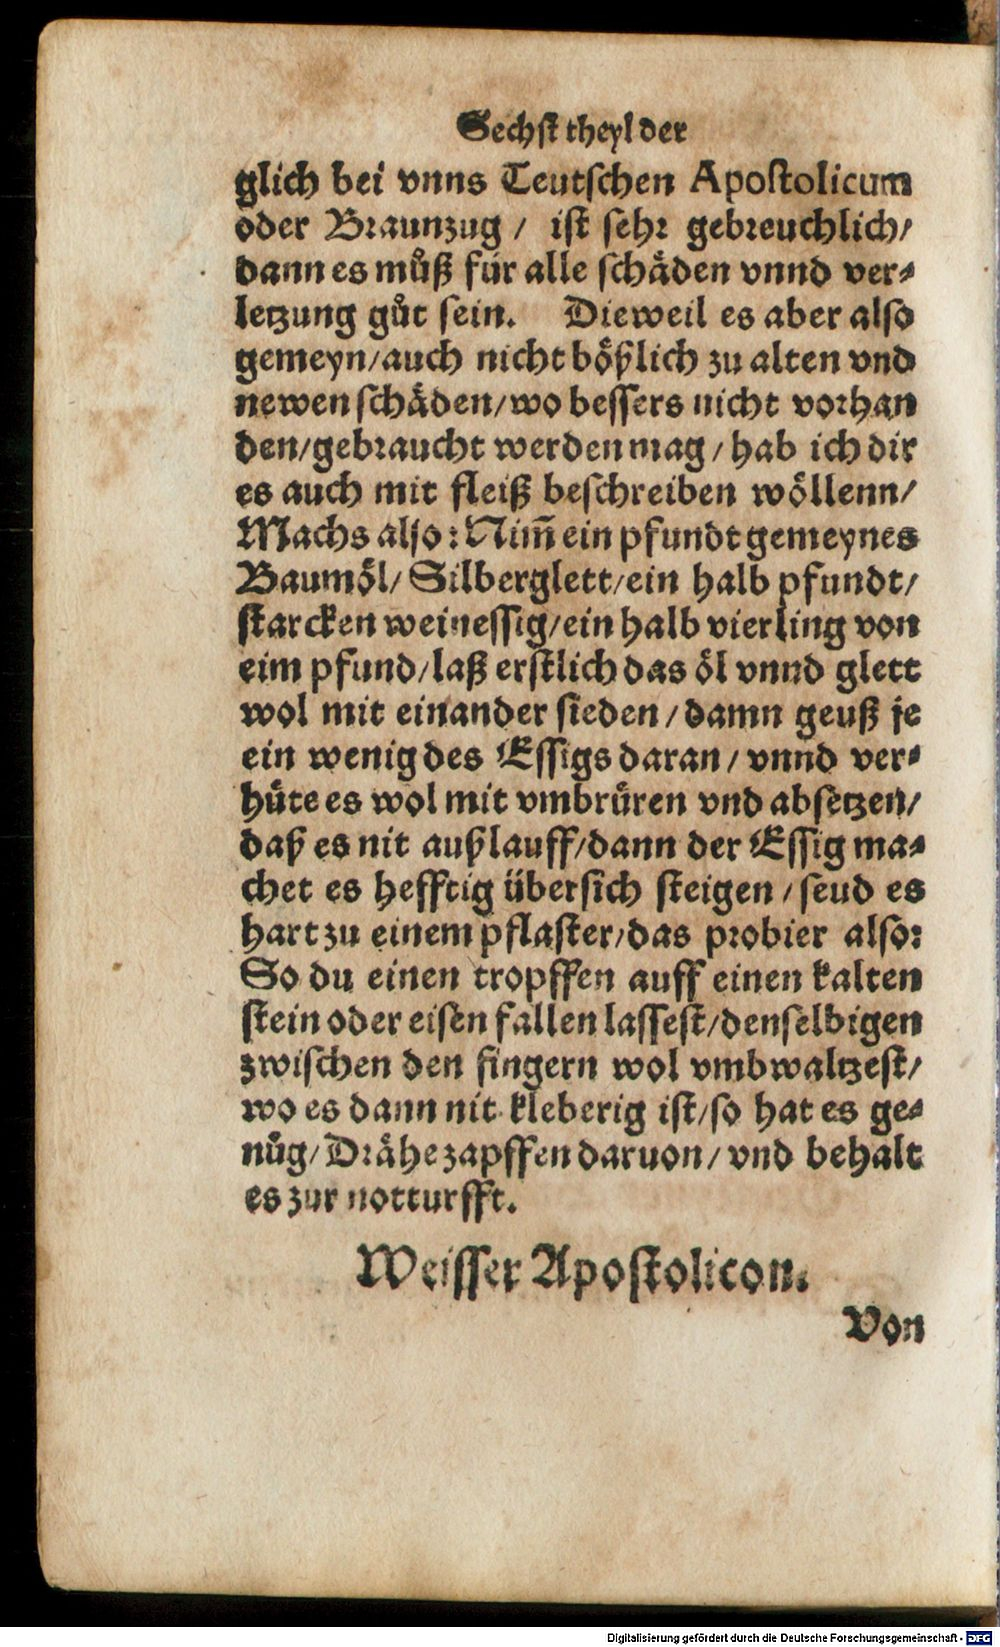 Sechst theyl der
glich bei vnns Teutschen Apostolicum
oder Braunzug / ist sehr gebreuchlich/
dann es můß für alle schäden vnnd ver-
letzung gůt sein. Dieweil es aber also
gemeyn/auch nicht bößlich zu alten vnd
newen schäden/wo bessers nicht vorhan
den/gebraucht werden mag / hab ich dir
es auch mit fleiß beschreiben wöllenn/
Machs also: Nim̃ ein pfundt gemeynes
Baumöl/ Silberglett/ein halb pfundt/
starcken weinessig/ein halb vierling von
eim pfund/laß erstlich das öl vnnd glett
wol mit einander sieden / damn geuß je
ein wenig des Essigs daran / vnnd ver-
hüte es wol mit vmbrüren vnd absetzen/
daß es nit außlauff/dann der Essig ma-
chet es hefftig übersich steigen / seud es
hart zu einem pflaster/das probier also:
So du einen tropffen auff einen kalten
stein oder eisen fallen lassest/denselbigen
zwischen den fingern wol vmbwaltzest/
wo es dann nit kleberig ist/so hat es ge-
nůg/Drähe zapffen daruon/ vnd behalt
es zur notturfft.
Weisser Apostolicon.
Von
Digitalisierung gefördert durch die Deutsche Forschungsgemeinschaft - DFG